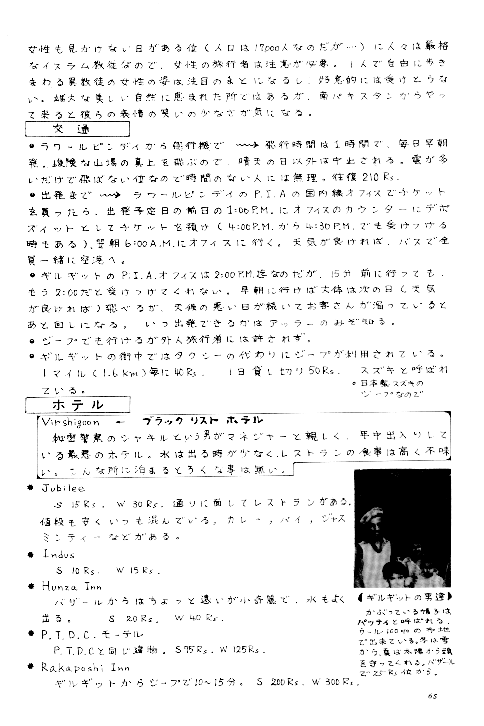 女性も見かけない日がある位(人口は17000人なのだが…)に人々は厳格
なイスラム教徒なので、女性の旅行者は注意が必要。1人で自由に歩き
まわる異教徒の女性の姿は注目のまとになるし、好意的には受けとらな
い。雄大な美しい自然に恵まれた所ではあるが、南パキスタンからやっ
て来ると彼らの表情の笑いの少なさが気になる。
交通
●ラワールピンディから飛行機で 〜〜→ 飛行時間は1時間で、毎日早朝
発。峻険な山場の真上を飛ぶので、晴天の日以外は中止される。雲が多
いだけで飛ばない位なので時間のない人には無理。往復210Rs.
●出発まで 〜〜→ ラワールピンディのP.I.Aの国内線オフィスでチケット
を買ったら、出発予定日の前日の1:00P.M.にオフィスのカウンターにデポ
ズイットとしてチケットを預け(4:00P.M.から4:30P.M.でも受けつける
時もある)、翌朝6:00A.M.にオフィスに行く。天気が良ければ、バスで全
員一緒に空港へ。
●ギルギットのP.I.A.オフィスは2:00P.M.迄なのだが、15分前に行っても、
もう2:00だと受けつけてくれない。早朝に行けば大体は次の日(天気
が良ければ)飛べるが、天候の悪い日が続いてお客さんが溜っていると
あと回しになる。いつ出発できるかはアッラーのみぞ知る。
●ジープでも行けるが外人旅行者には許されず。
●ギルギットの街中ではタクシーの代わりにジープが利用されている。
1マイル(1.6Km)毎に40Rs. 1日貸し切り50Rs. スズキと呼ばれ
ている。
○日本製スズキの
ジープなので
ホテル
Virshigoon ― ブラック リスト ホテル
秘密警察のシャキルという男がマネジャーと親しく、年中出入りして
いる最悪のホテル。水は出る時が少なく、レストランの食事は高く不味
い。こんな所に泊まるとろくな事は無い。
● Jubilee
S 15Rs. W 30Rs. 通りに面してレストランがある。
値段も安くいつも混んでいる。カレー、パイ、ジャス
ミンティーなどがある。
● Indus
S 10Rs. W 15Rs.
● Hunza Inn
バザールからはちょっと遠いが小奇麗で、水もよく
出る。 S 20Rs. W 40Rs.
● P.T.D.C.モーテル
P.T.D.Cと同じ建物。S 95Rs. W 125Rs.
● Rakaposhi Inn
ギルギットからジープで10〜15分。 S 200Rs. W 300Rs.
【ギルギットの男達】
かぶっている帽子は
パッティと呼ばれる、
ウール100%の布地
で出来ている。冬は雪
から、夏は太陽から頭
を守ってくれる。バザール
で25Rs位から。
65